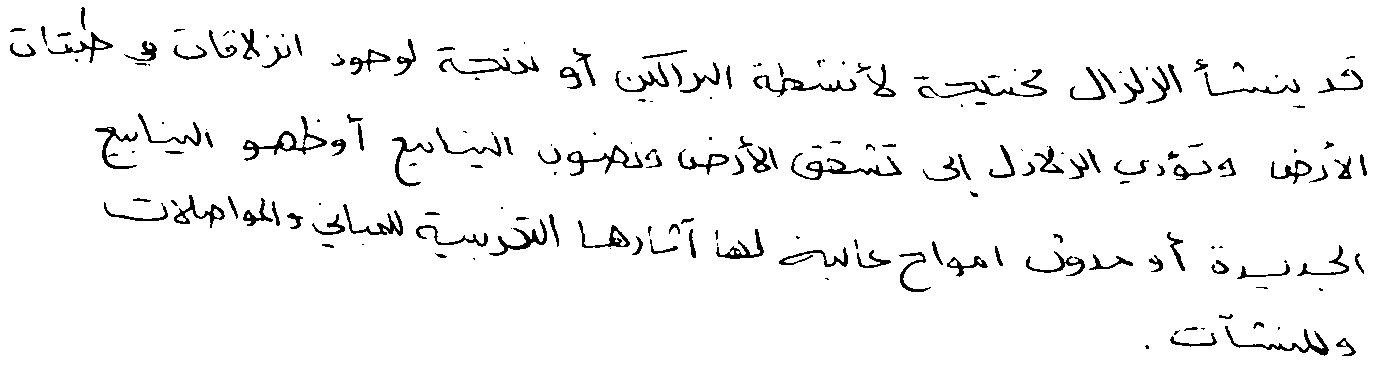 قد ينشأ الزلزال كنتيجة لأنشطة البراكين أو نتيجة لوجود انزلاقات في طبقات
الأرض وتؤدي الزلازل إلى تشقق الأرض ونضوب الينابيع أو ظهو الينابيع
الجديدة أو حدوث امواج عالية لها آثارها التخريبية للمباني والمواصلات
وللمنشآت .